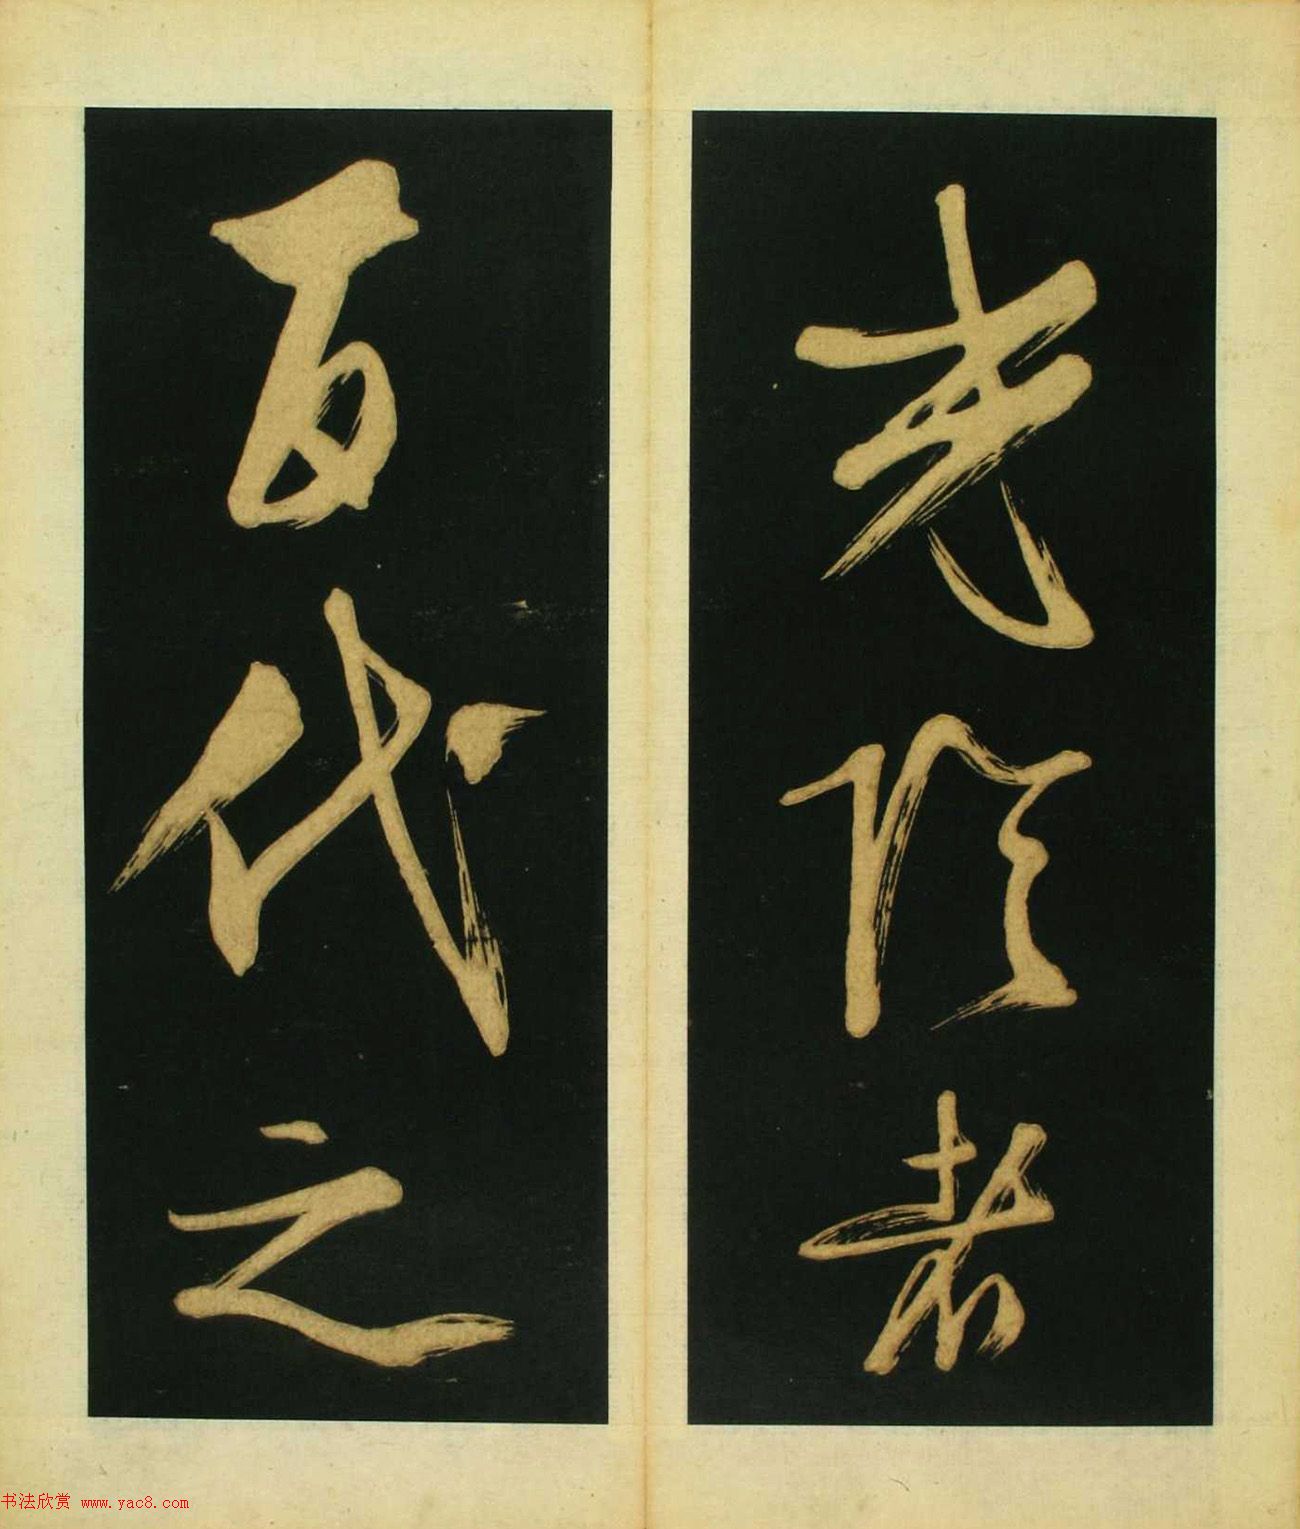 光陰者
百代之
书法欣赏 www.yac8.com